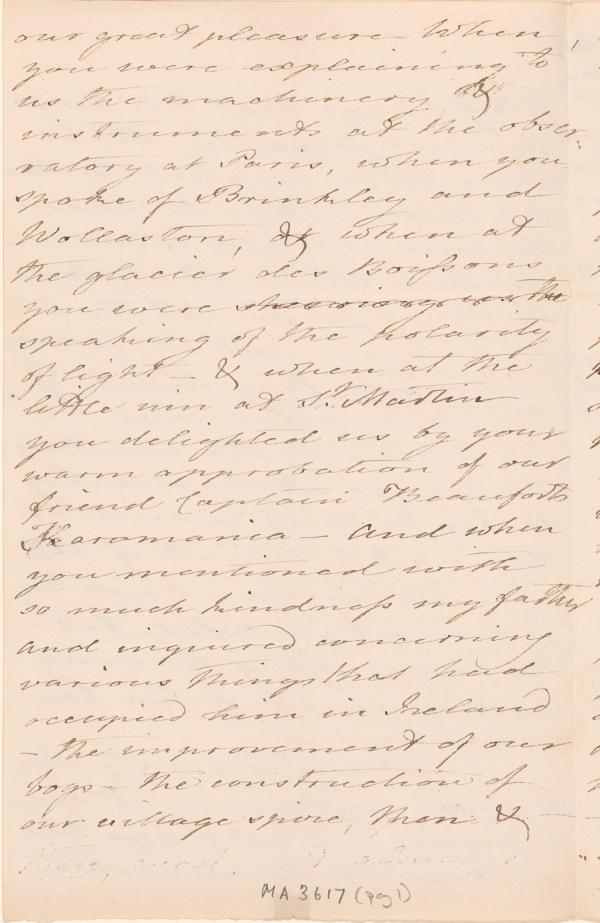 our great pleasure – When
you were explaining to
us the machinery &
instruments at the obser-
ratory at Paris, when you
spoke of Brinkley and
Wollaston, & when at
the glacier des Boissons
you were shewing us the
speaking of the polarity
of light – & when at the
little inn at St. Martin
you delighted us by your
warm approbation of our
friend Captain Beaufort's
Karamania – and when
you mentioned with
so much kindness my father
and inquired concerning
various things that had
occupied him in Ireland
– the improvement of our
bogs – the construction of
our village spire, then &
MA 3617 (pg 1)